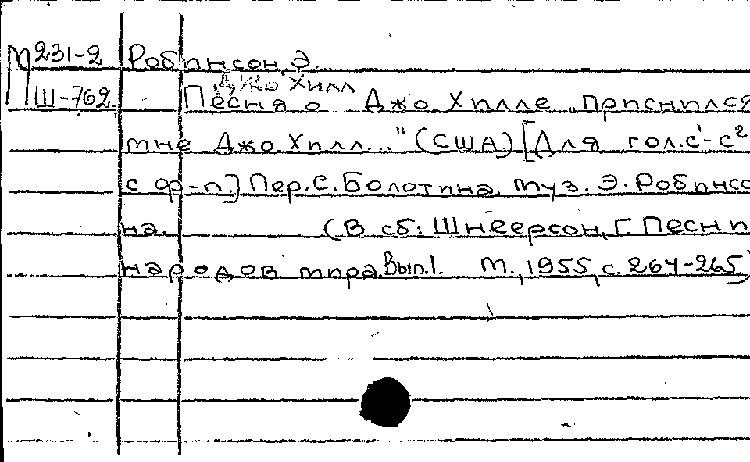 М 231-2 Робинсон, Э.
Джо Хилл
Ш-762 Песня о Джо Хилле „Приснился
мне Джо Хилл..." (США) [Для гол. c¹-c²
с ф-п.] Пер. С. Болотина. Муз. Э. Робинсо
на. (В сб: Шнеерсон, Г. Песни
народов мира. Вып. 1. М., 1955, с. 264-265)